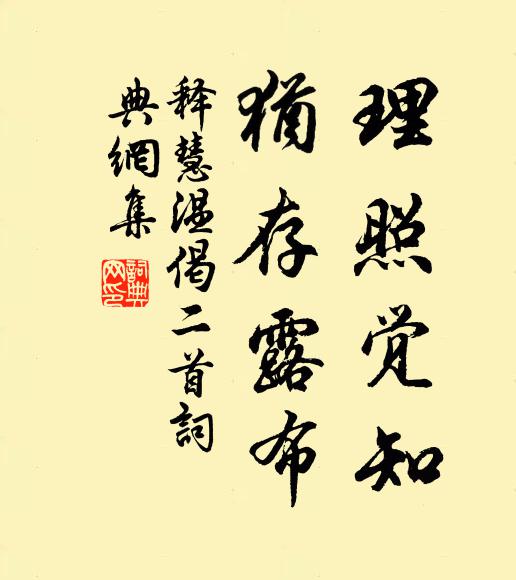 理照觉知
猶存露布
释慧温偈二首詞
典網集
詞典
网印